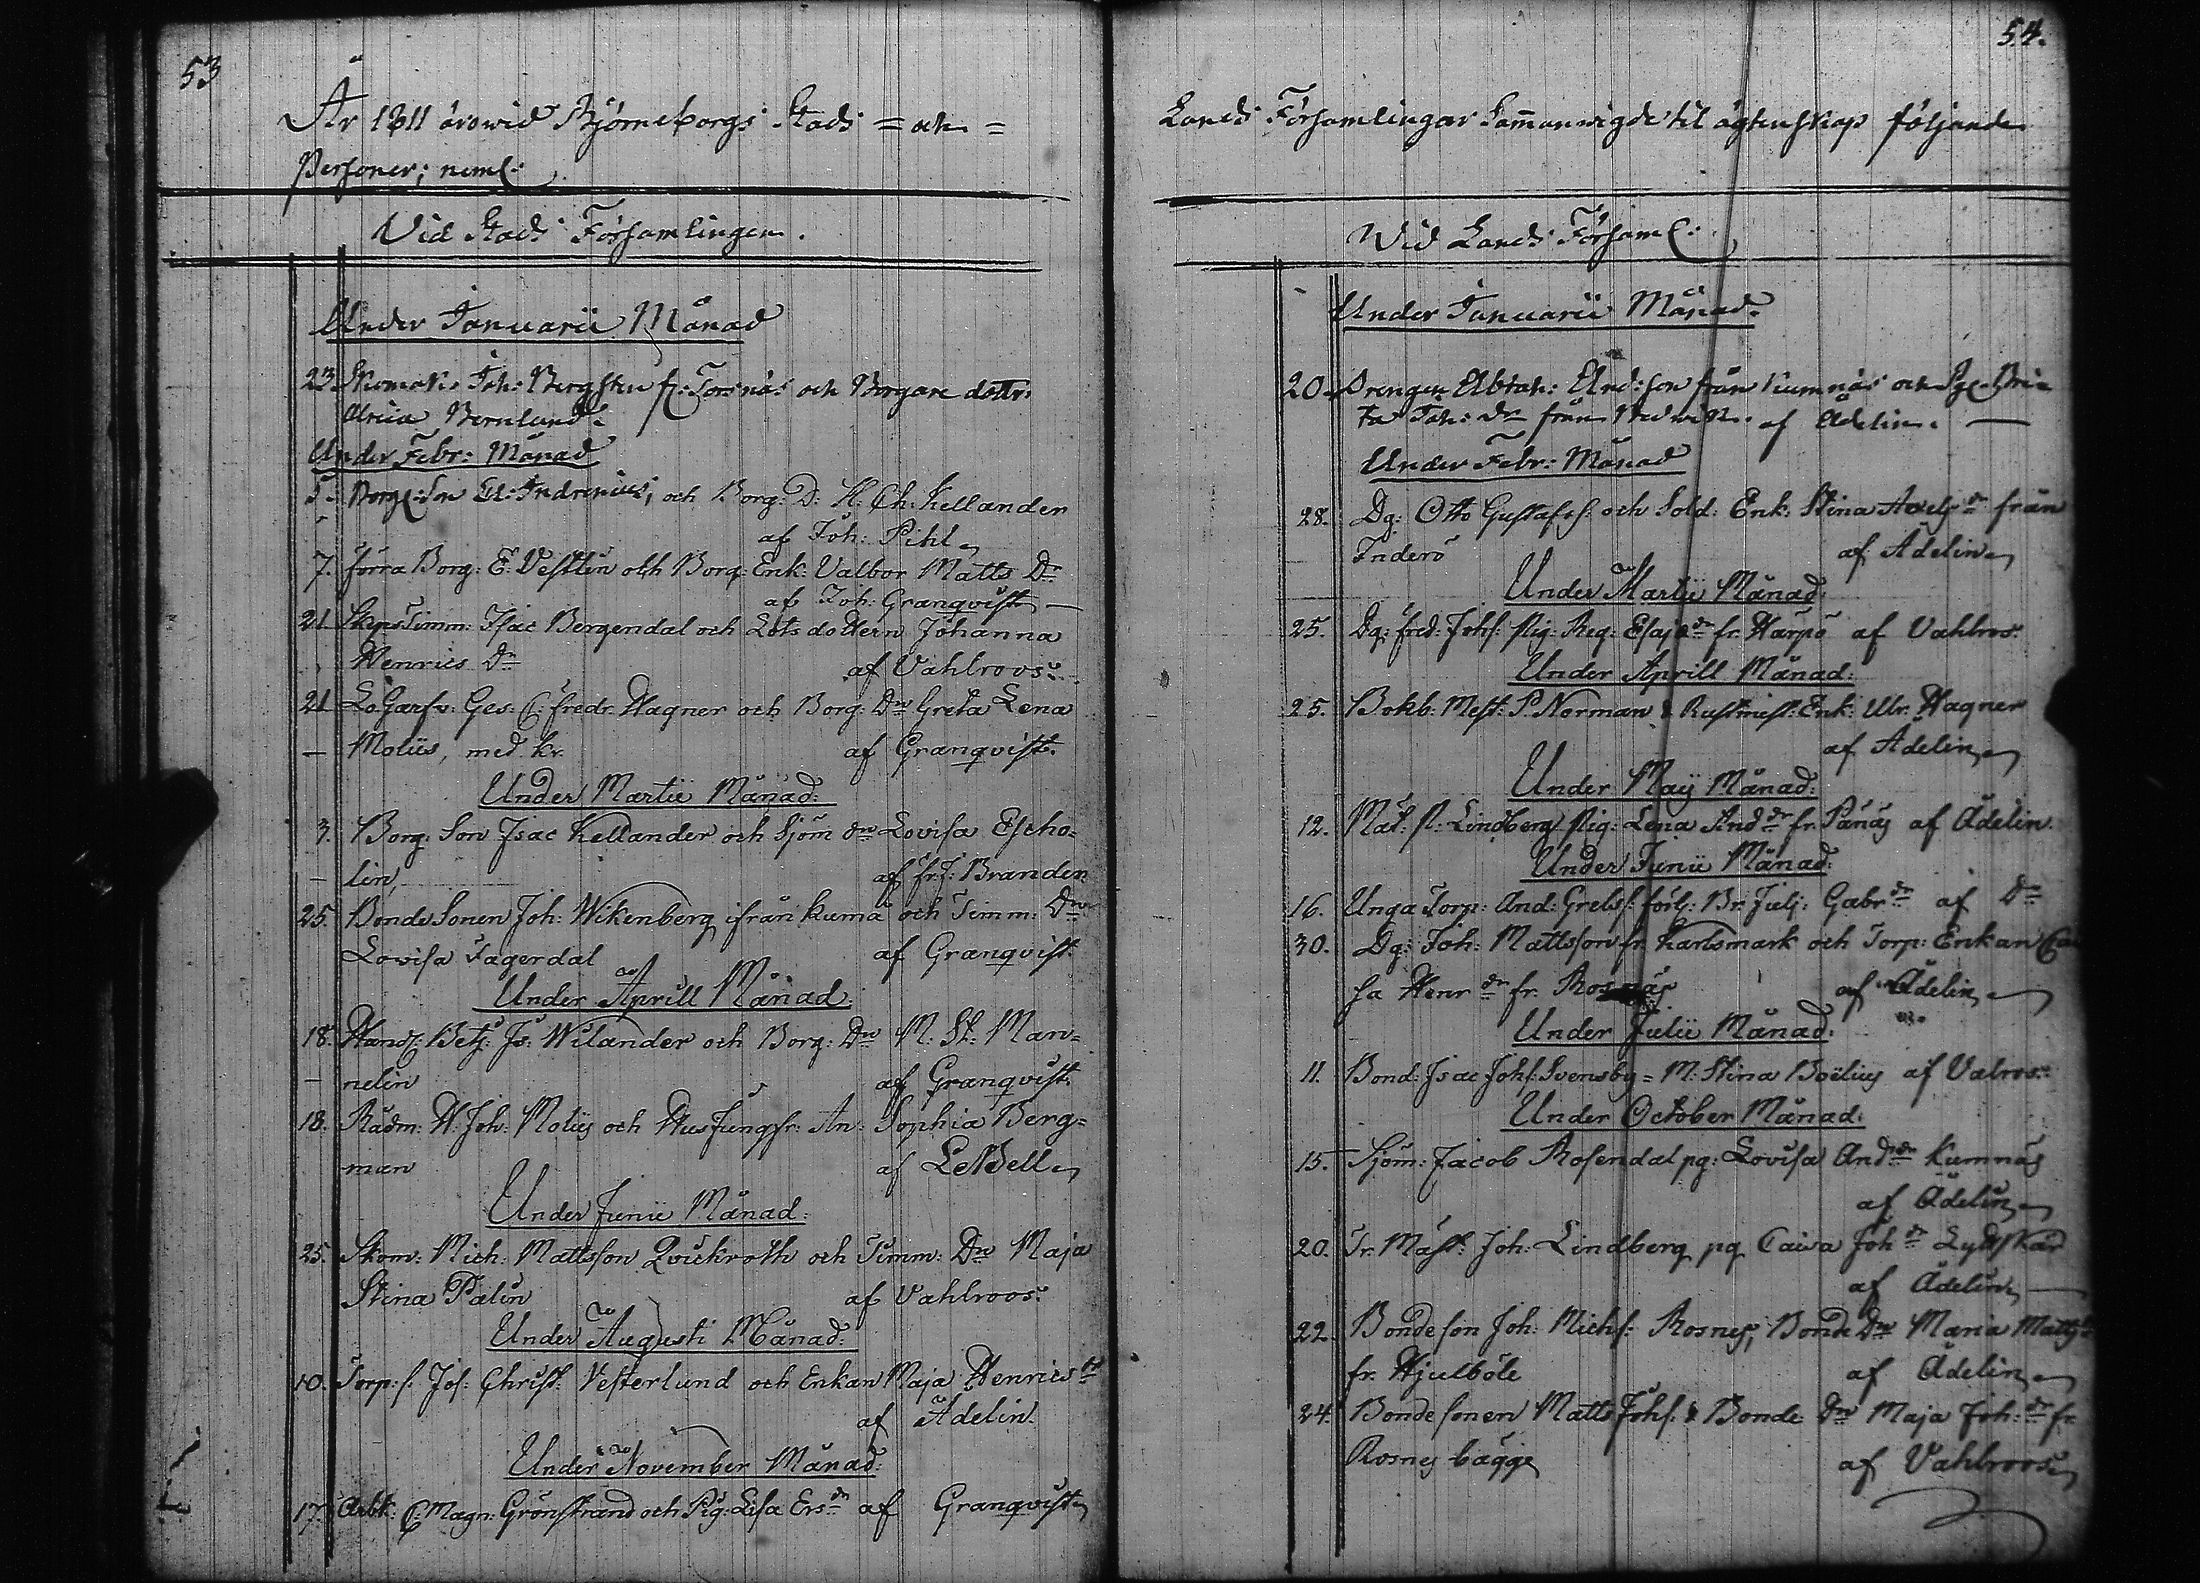 53
År 1811 äro wid Björneborgs Stads = och =
Personer; neml:
Vid Stads Församlingen.
Under Januarii Månad
23. Skomak: Joh: Bergsten fr: Torsnäs och Borgare dottr:
Ulrica Bernlund.
Under Febr: Månad
5. Borg: Son Ed: Indrenius, och Borg: D: H. Ch: Kellander
af Joh: Pihl
7. förra Borg: E. Vestlin och Borg: Enk: Valbor Matts Dr
af Joh: Granqvist
21. SkepsTimm: Isac Bergendal och Lots dottern Johanna
Henrics Dr af Vahlroos:
21 Lo.Garfv: Ges: C: fredr. Wagner och Borg: Dr Greta Lena
— Moliis, med kr. af Granqvist.
Under Martii Månad:
3. Borg: Son Isac Kellander och Sjöm dr Lovisa Escho=
— lin, af fr: J: Brander
25. Bonde Sonen Joh: Wikenberg ifrån kumä och Timm: Dr
Lovisa Fagerdal af Granqvist.
Under Aprill Månad:
18. Handl: Betj: Js: Wilander och Borg: Dr M: St: Man=
— nelin af Granqvist
18. Rådm: H. Joh: Moliis och HusJungfr: An: Sophia Berg=
man af LeBell
Under Junii Månad:
25. Skom: Mich: Mattsson Qvickroth och Timm: Dr Maja
Stina Palin af Vahlroos:
Under Augusti Månad:
10. Torp: s. Joh: Christ: Vesterlund och Enkan Maja Henrics dr
af Ädelin.
Under November Månad:
17. Arbk: C: Magn: Grönstrand och Pig: Lisa Ers dr af Granqvist
54.
Lands Församlingar Sammanwigde til ägtenskap följande
Wid Lands Församl:
Under Januarii Månad.
20. Drengen Abrah: And:son från Kumnäs och Pg: Bri=
ta Joh: dr från af Ädelin. —
Under Febr: Månad
28. Dg: Otto Gustafss: och Sold: Enk: Stina Axels dr från
Inderö af Ädelin
Under Martii Månad:
25. Dg: fred: Johs: Pig: Reg: Esajæ dr fr. Harpö af Vahlros:
Under Aprill Månad:
25. Bokb: Mest: P. Norman & Rustmest: Enk: Ulr. Wagner
af Ädelin
Under Maij Månad:
12. Mat: P: Lindberg Pig: Lena And dr fr. Pånäs af Ädelin.
Under Junii Månad:
16. Unga Torp: And: Grels: Br: Julj: Gabr dr af Dr
30. Dg: Joh: Mattsson fr. Karlsmark och Torp: Enkan Cai
sa Henr dr fr. Rosnäs af Ädelin
Under Julii Månad:
11. Bond: Isac Johs: Svensby = M: Stina Boëlius af Valros:
Under October Månad:
15. Sjöm: Jacob Rosendal pg: Lovisa And dr Kumnäs
af Ädelin
20. Tr. Mäst: Joh: Lindberg pg Caisa Joh dr Lyttskär
af Ädelin —
22. Bondeson Joh: Michs: Rosnes, Bonde Dr Maria Matts
fr. Hjulböle af Ädelin
24. Bondesonen Matts Johs: & Bonde Dr Maja Joh: dr fr
Rosnes bägge af Vahlroos